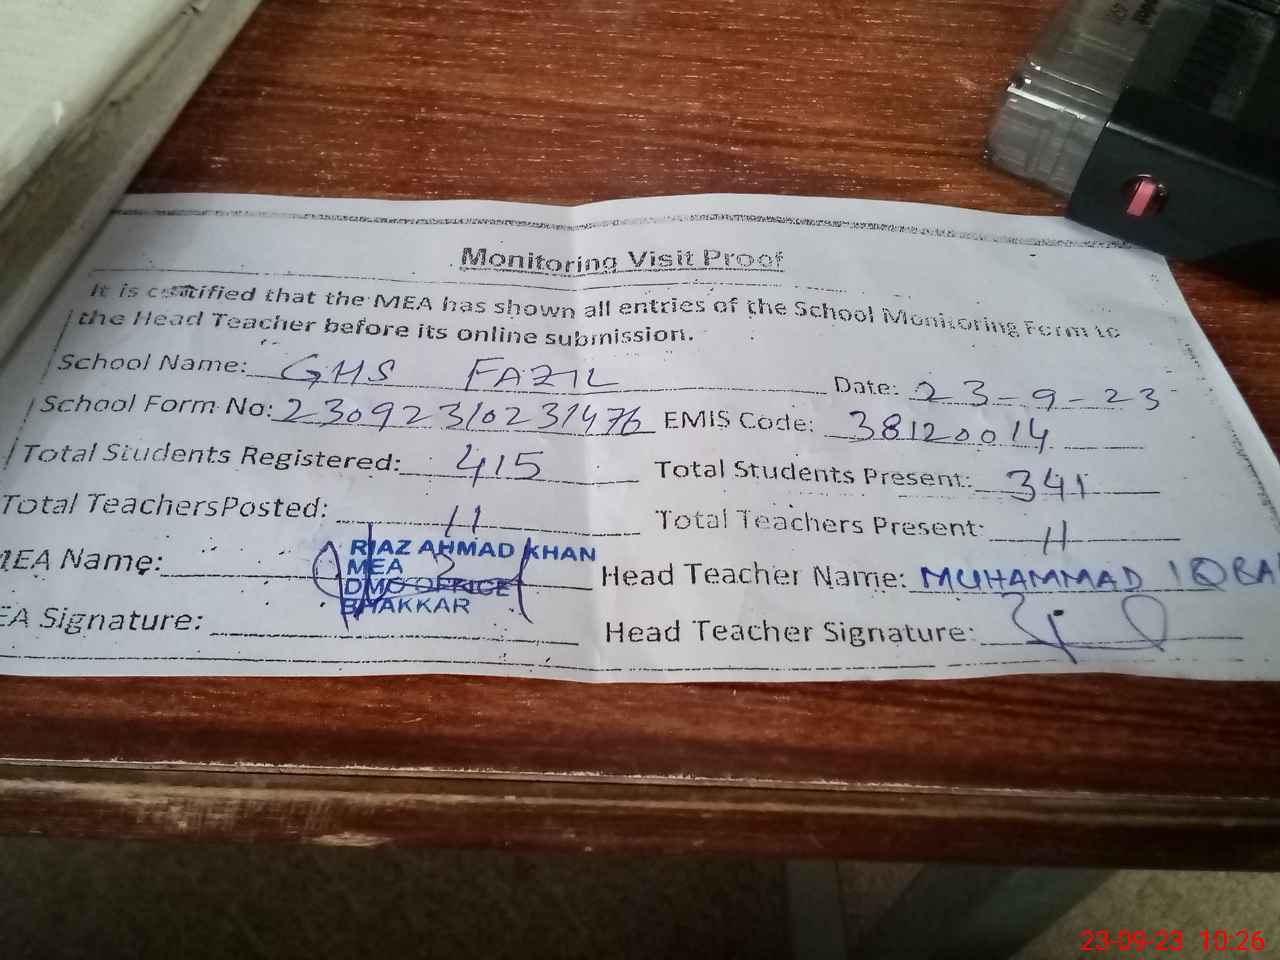 Monitoring Visit Proof
It is certified that the MEA has shown all entries of the School Monitoring Form to
the Head Teacher before its online submission.
School Name: GHS FAZIL Date: 23-9-23
School Form No: 23092310231476 EMIS Code: 38120014
Total Students Registered: 415 Total Students Present: 341
Total TeachersPosted: 11 Total Teachers Present: 11
MEA Name: RIAZ AHMAD KHAN Head Teacher Name: MUHAMMAD IQBA
MEA
DMO OFFICE
BHAKKAR
EA Signature: Head Teacher Signature:
23-09-23 10:26